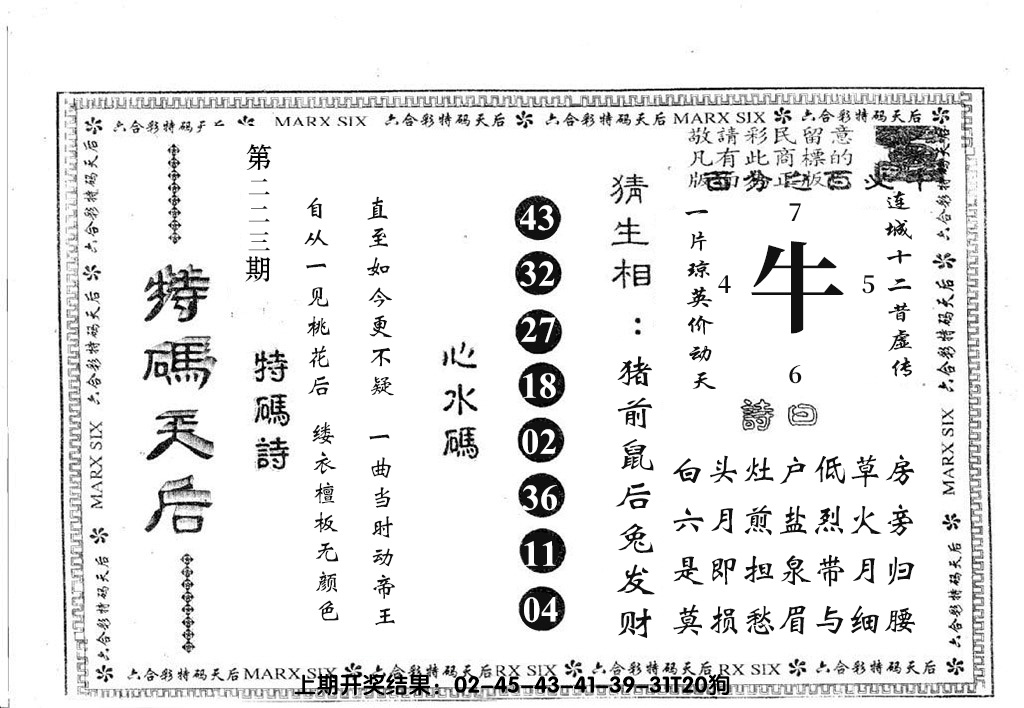 六合彩特码 MARX SIX 六合彩特码天后 六合彩特码天后 MARX SIX 六合彩特码天后
敬請彩民留意
凡有此商標的
版面為正版
百分之百
连城十二昔虚传
7
4 牛 5
6
一片琼英价动天
詩曰
白头灶户低草房
六月煎盐烈火旁
是即担泉带月归
莫损愁眉与细腰
猜生相：猪前鼠后兔发财
43
32
27
18
02
36
11
04
心水碼
直至如今更不疑 一曲当时动帝王
自从一见桃花后 缕衣檀板无颜色
特碼詩
第二二三期
特碼天后
六合彩特码天后 六合彩特码天后 MARX SIX 六合彩特码天后
六合彩特码天后 六合彩特码天后 MARX SIX 六合彩特码天后
六合彩特码天后 MARX SIX 六合彩特码天后 RX SIX 六合彩特码天后 RX SIX 六合彩特码天后
上期开奖结果：02-45-43-41-39-31T20狗